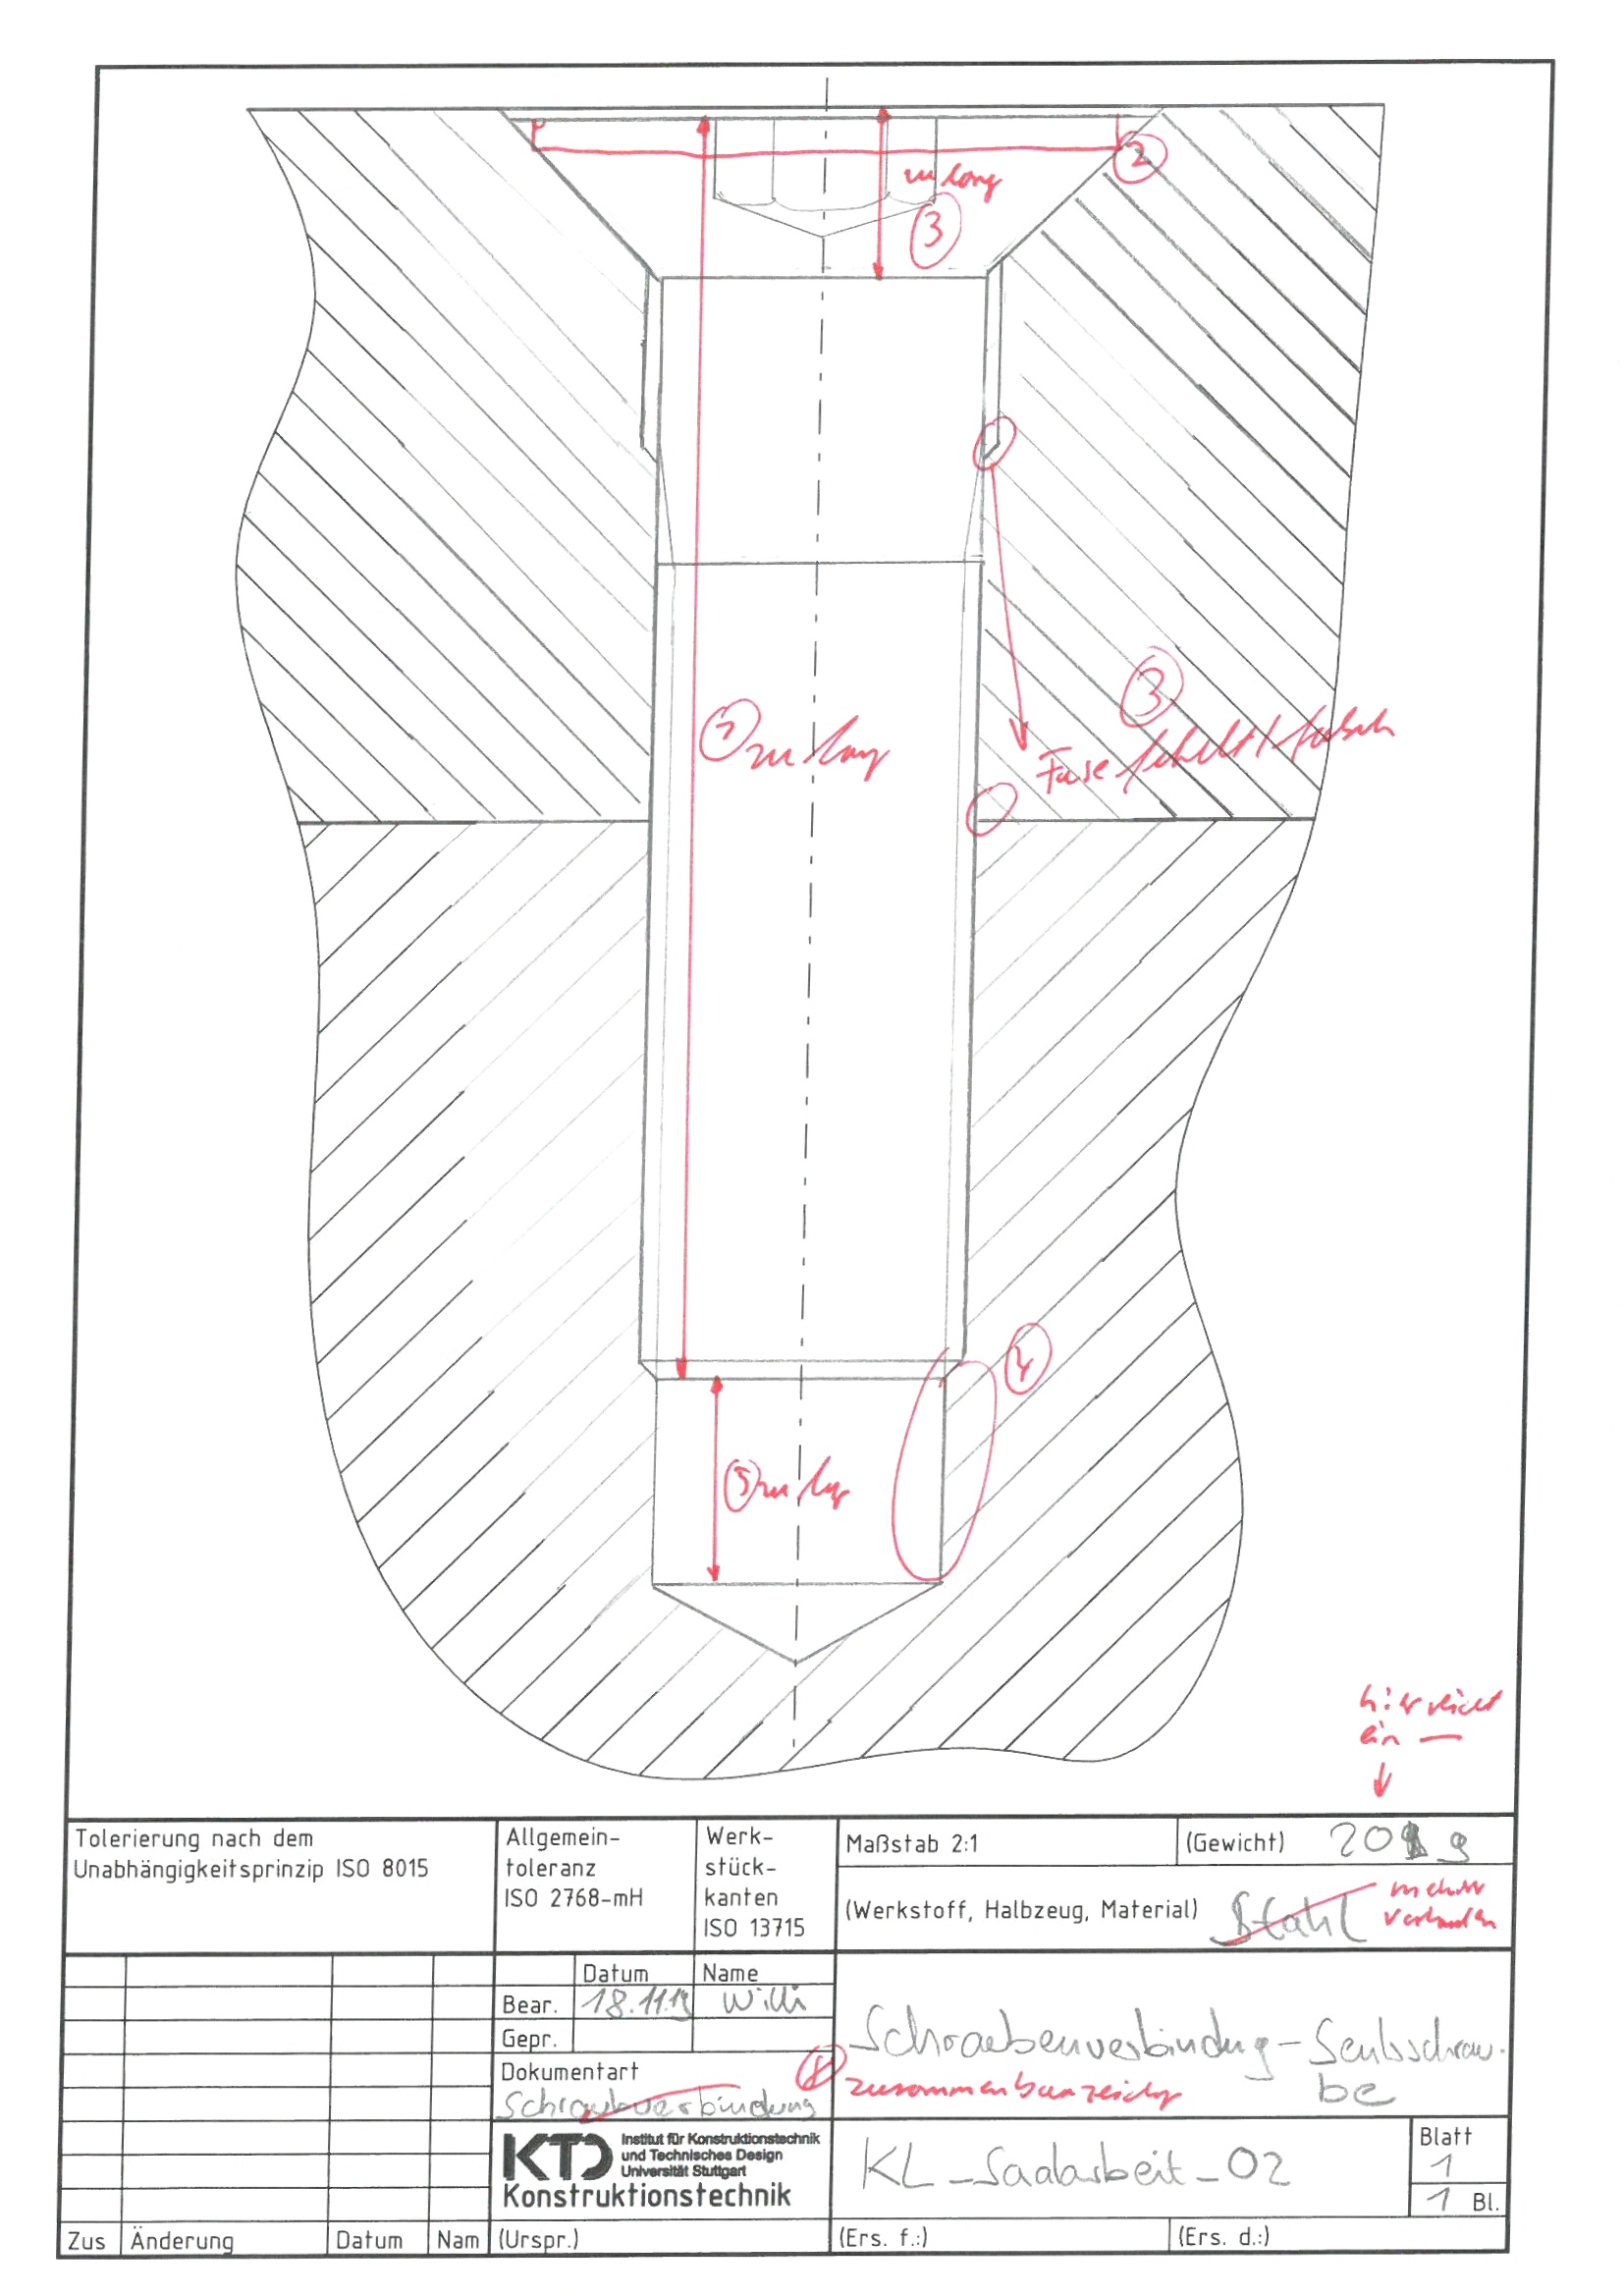 zu lang
2
3
3
Fase fehlt/falsch
1 zu lang
4
5 zu lg
hier reicht
ein —
Tolerierung nach dem
Unabhängigkeitsprinzip ISO 8015
Allgemein-
toleranz
ISO 2768-mH
Werk-
stück-
kanten
ISO 13715
Maßstab 2:1
(Gewicht) 201 g
(Werkstoff, Halbzeug, Material) Stahl
mehrere
vorhanden
Datum Name
Bear. 18.11.19 Willi
Gepr.
Dokumentart
Schraubverbindung
8 zusammenbauzeichg
Schraubenverbindung - Senkschrau-
be
KTD Institut für Konstruktionstechnik
und Technisches Design
Universität Stuttgart
Konstruktionstechnik
KL_Saalarbeit_02
Blatt
1
1 Bl.
Zus Änderung Datum Nam (Urspr.) (Ers. f.:) (Ers. d.:)